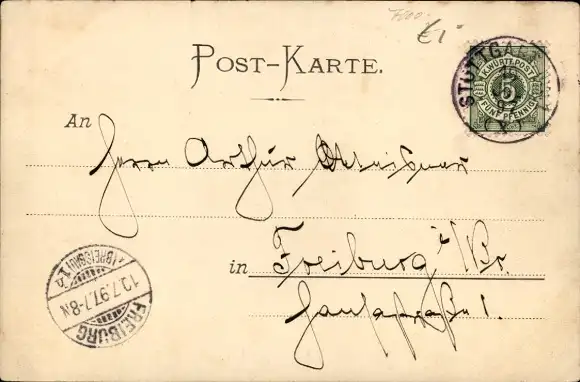 7500.-
€1
POST-KARTE.
STUTTGART
K. WÜRTT. POST
5
FÜNF PFENNIG
An
Herrn Arthur
Freiburg i/Br.
in
1.
(BREISGAU) 1.
10.7.97.7-8N.
FREIBURG